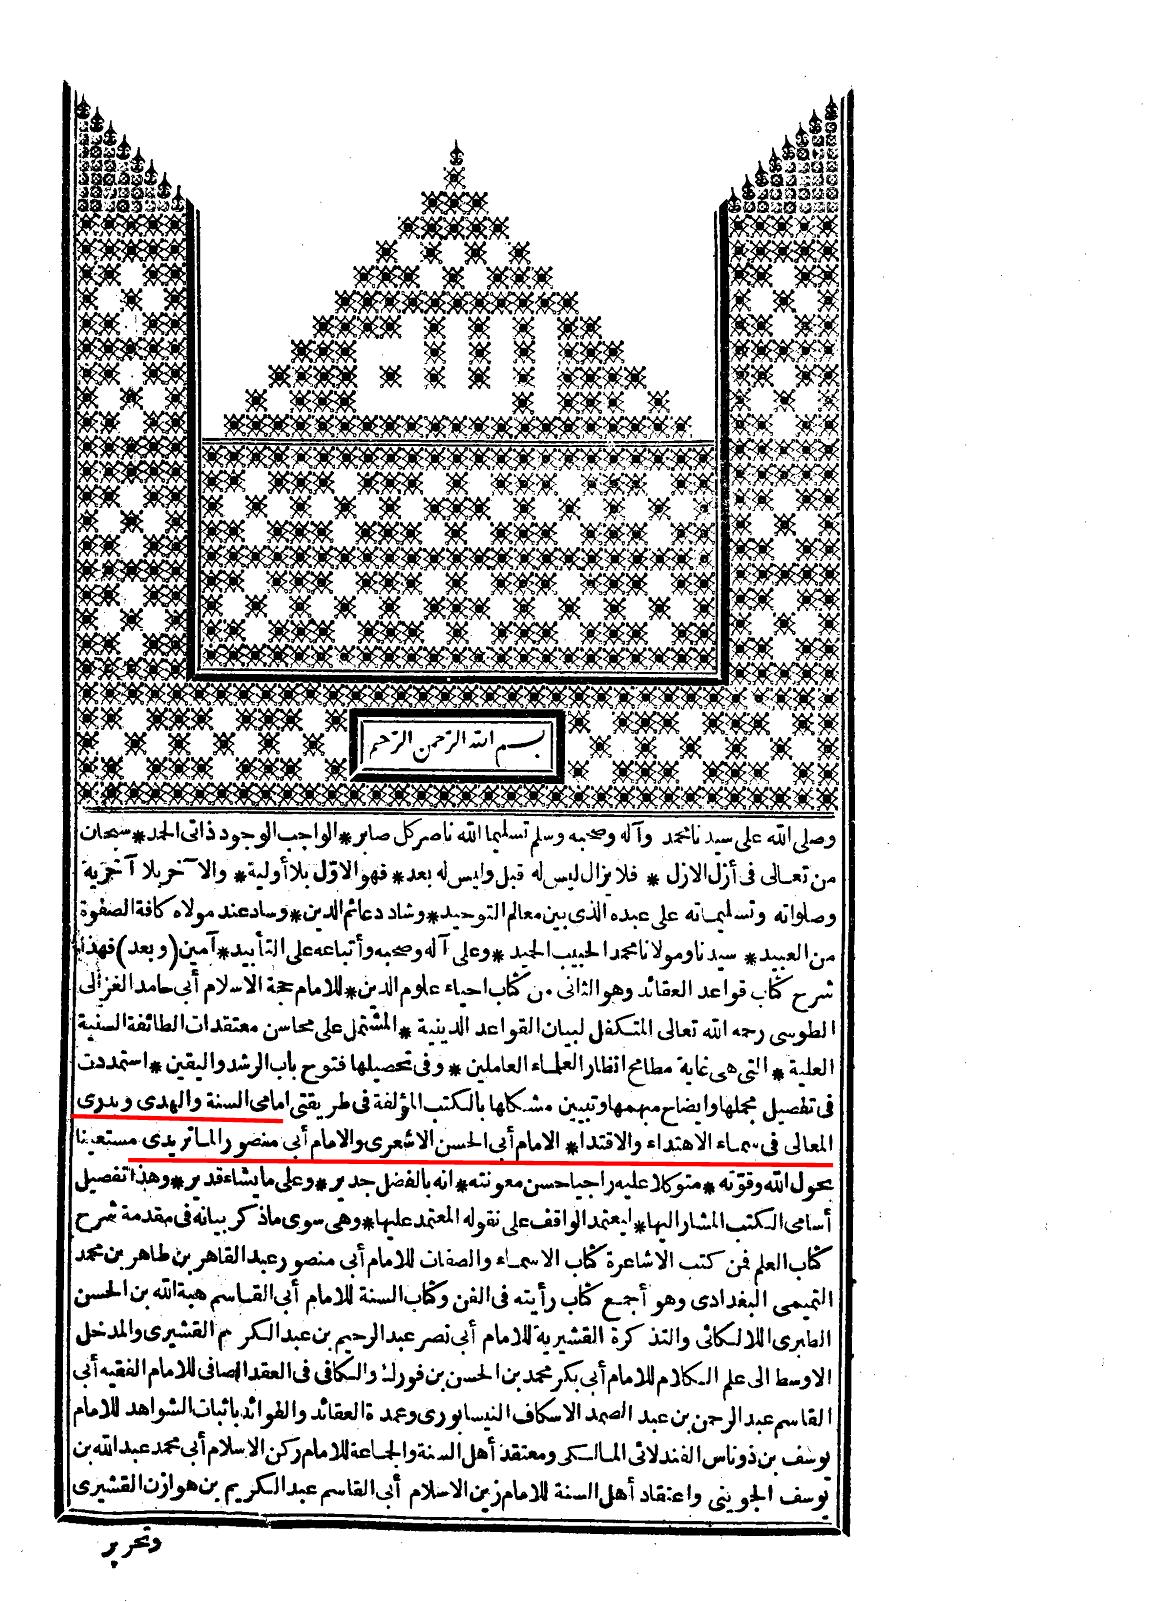 بسم الله الرحمن الرحيم
وصلى الله على سيدنا محمد وآله وصحبه وسلم تسليما الله ناصر كل صابر * الواجب الوجود ذاتى الحمد * سبحان
من تعالى فى أزل الازل * فلا يزال ليس له قبل وليس له بعد * فهو الاوّل بلا أولية * والا آخر بلا آخرية
وصلواته وتسليماته على عبده الذى بين معالم التوحيد * وشاد دعائم الدين * وساد عند مولاه كافة الصفوة
من العبيد * سيدنا ومولانا محمد الحبيب الحميد * وعلى آله وصحبه وأتباعه على التأبيد * آمين (وبعد) فهذا
شرح كتاب قواعد العقائد وهو الثانى من كتاب احياء علوم الدين * للامام حجة الاسلام أبى حامد الغزالى
الطوسى رحمه الله تعالى المتكفل لبيان القواعد الدينية * المشتمل على محاسن معتقدات الطائفة السنية
العلية * التى هى غاية مطامح انظار العلماء العاملين * وفى تحصيلها فتوح باب الرشد واليقين * استمددت
فى تفصيل مجملها وايضاح مبهمها وتبيين مشكلها بالكتب المؤلفة فى طريقتى امامى السنة والهدى وبدرى
المعالى فى سماء الاهتداء والاقتدا * الامام أبى الحسن الاشعرى والامام أبى منصور الماتريدى مستعينا
بحول الله وقوّته * متوكلا عليه راجيا حسن معونته * انه بالفضل جدير * وعلى ما يشاء قدير * وهذا تفصيل
أسامى الكتب المشار اليها * ليعتمد الواقف على نقوله المعتمد عليها * وهى سوى ماذكر بيانه فى مقدمة شرح
كتاب العلم فمن كتب الاشاعرة كتاب الاسماء والصفات للامام أبى منصور عبد القاهر بن طاهر بن محمد
التميمى البغدادى وهو أجمع كتاب رأيته فى الفن وكتاب السنة للامام أبى القاسم هبة الله بن الحسن
الطبرى اللالكائى والتذكرة القشيرية للامام أبى نصر عبد الرحيم بن عبد الكريم القشيرى والمدخل
الاوسط الى علم الكلام للامام أبى بكر محمد بن الحسن بن فورك والكافى فى العقد الصافى للامام الفقيه أبى
القاسم عبد الرحمن بن عبد الصمد الاسكاف النيسابورى وعمدة العقائد والفوائد باثبات الشواهد للامام
يوسف بن ذوناس الفندلائى المالكى ومعتقد أهل السنة والجماعة للامام ركن الاسلام أبى محمد عبد الله بن
يوسف الجوينى واعتقاد أهل السنة للامام زين الاسلام أبى القاسم عبد الكريم بن هوازن القشيرى
وتحرير